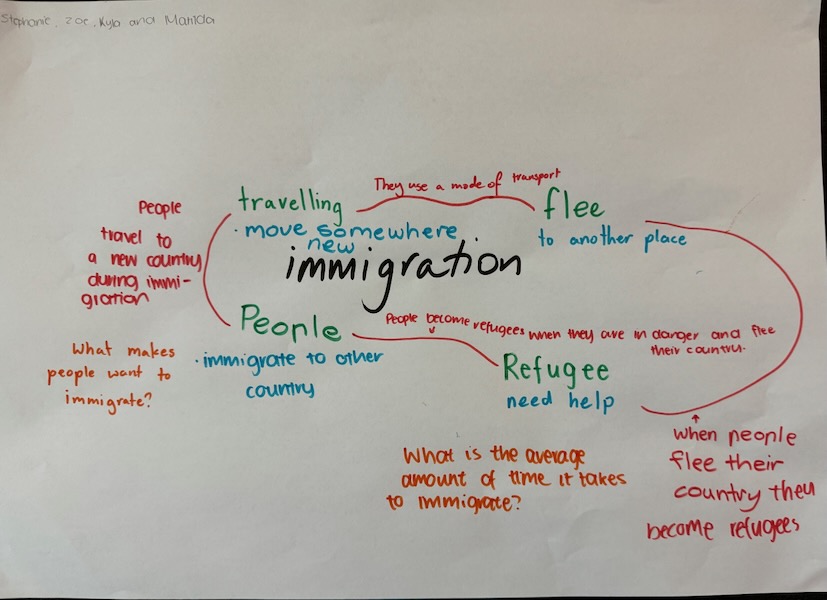 Stephanie, Zoe, Kyla and Matilda
They use a mode of transport
travelling
flee
People
travel to
a new country
during immi-
gration
· move somewhere
new
to another place
immigration
People
People become refugees when they are in danger and flee
their country.
· immigrate to other
country
Refugee
need help
What makes
people want to
immigrate?
What is the average
amount of time it takes
to immigrate?
when people
flee their
country they
become refugees